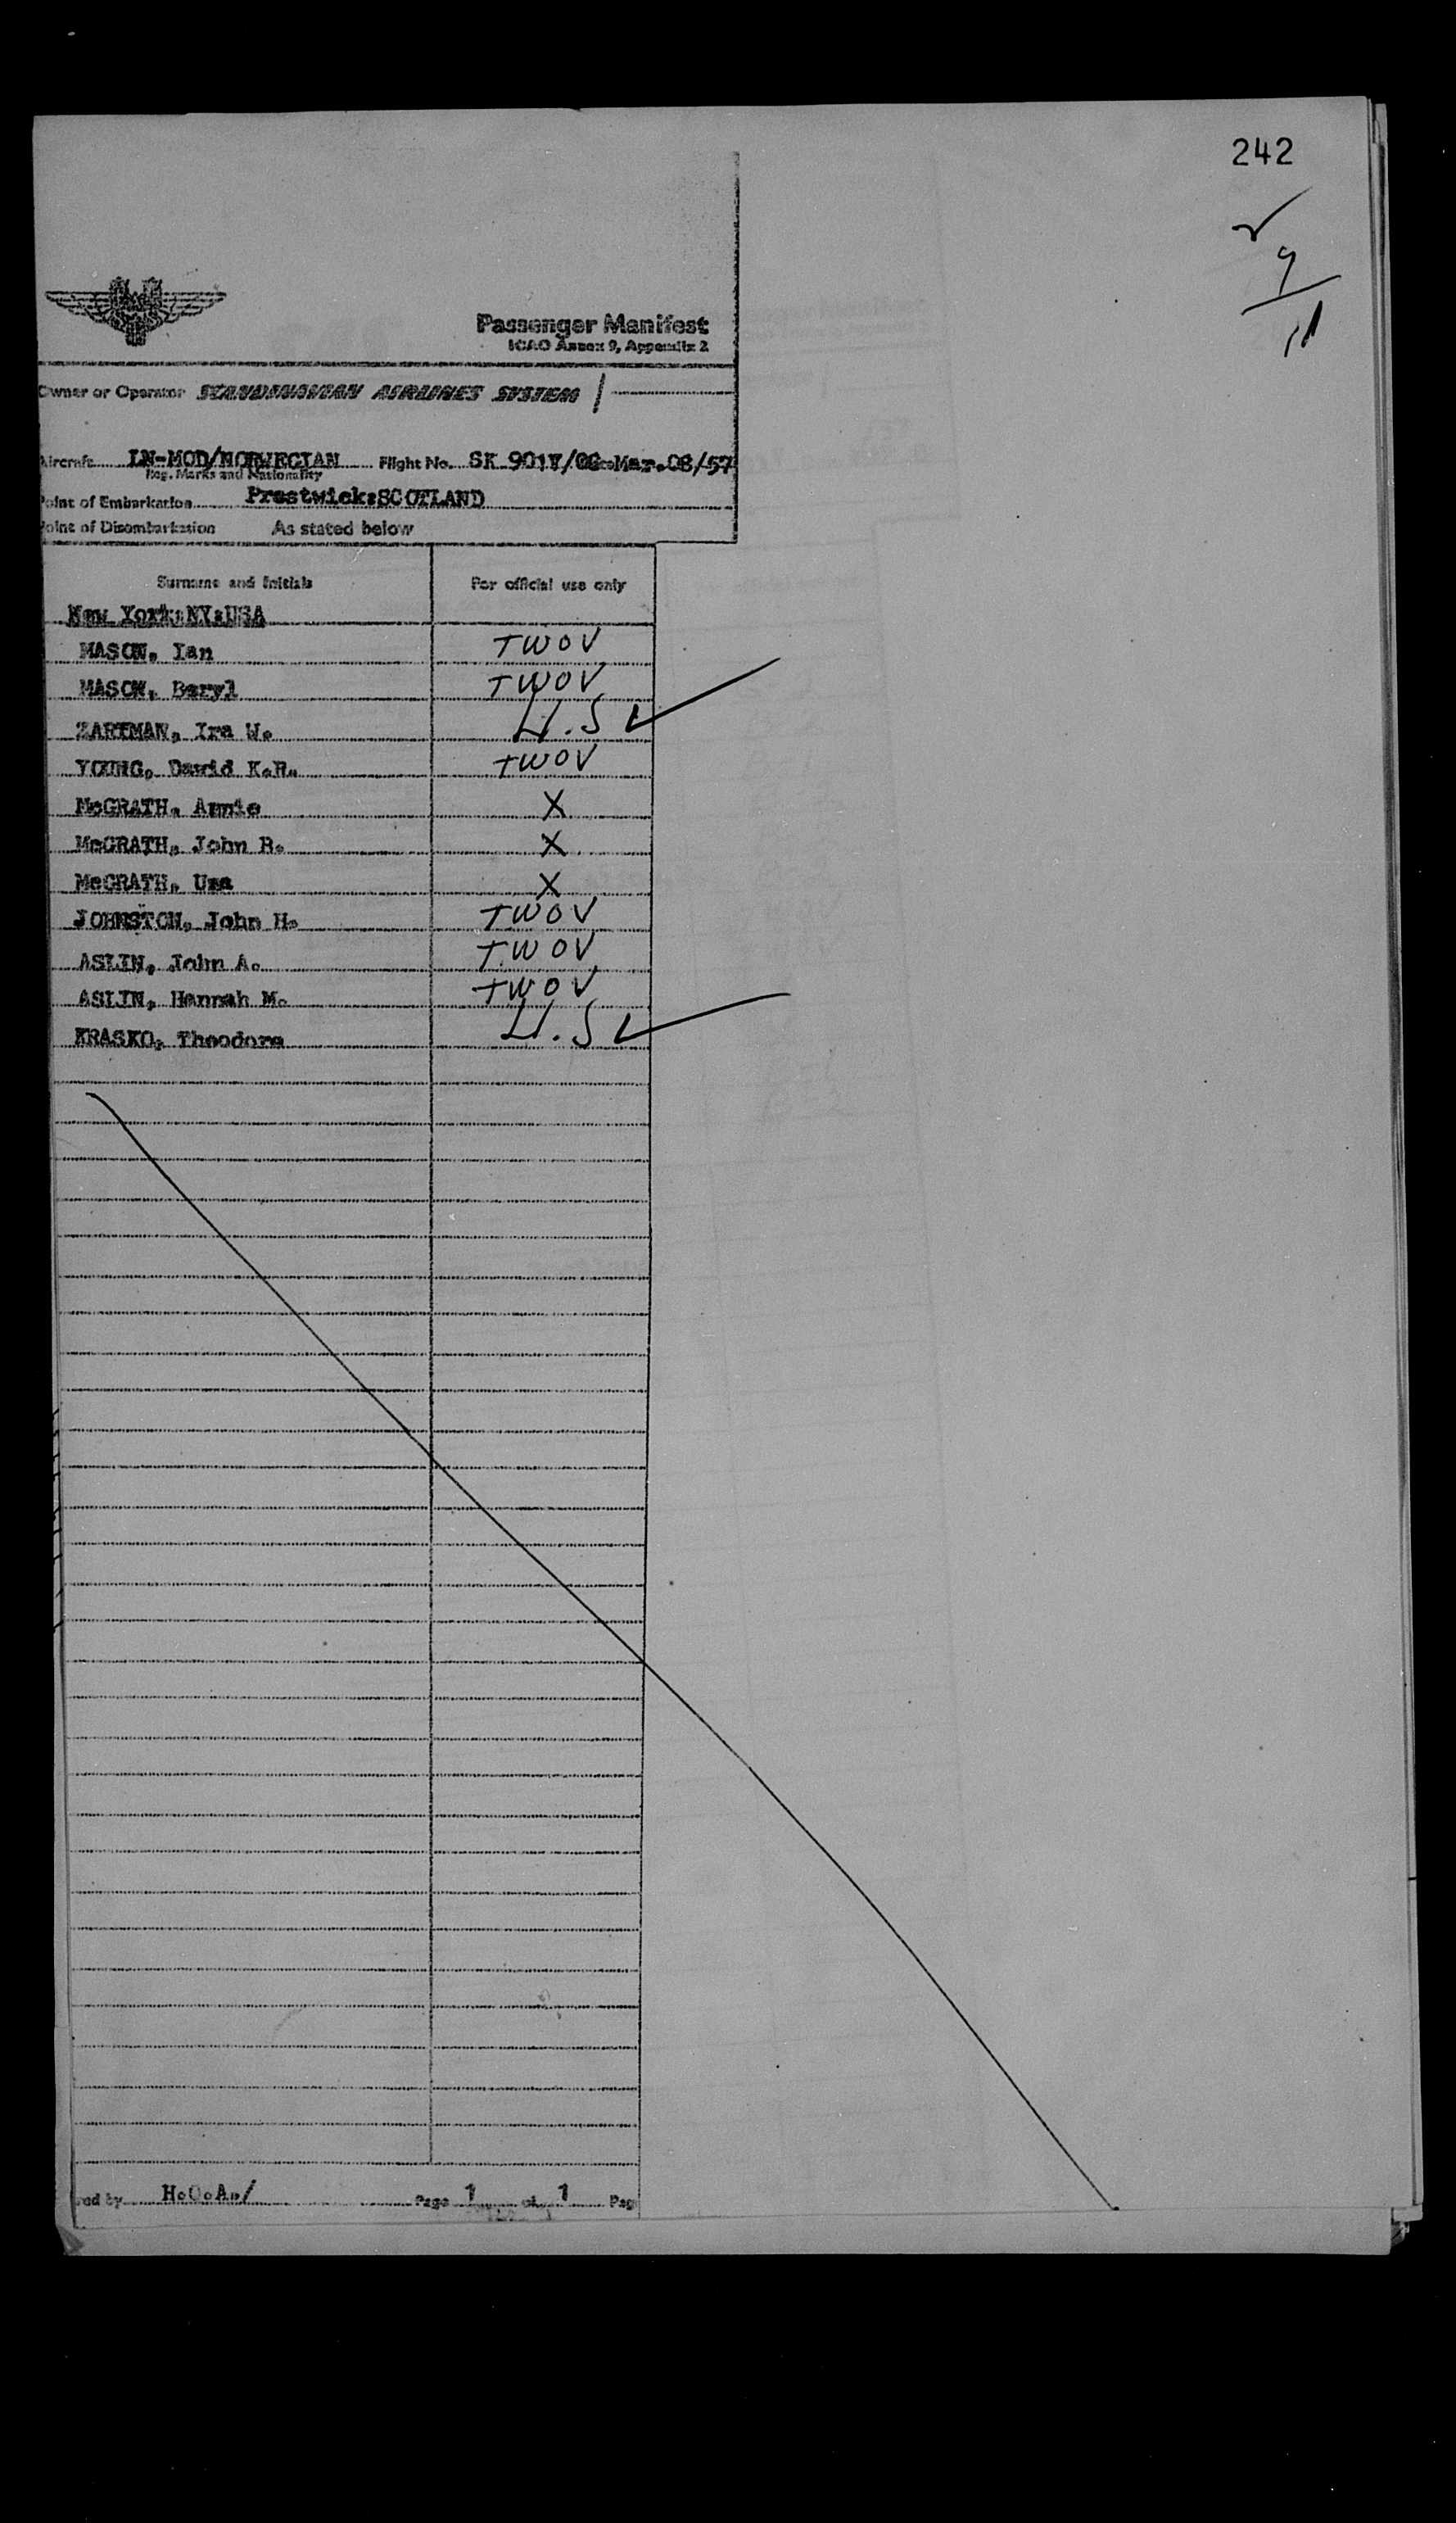 242
9
11
Passenger Manifest
ICAO Annex 9, Appendix 2
Owner or Operator SCANDINAVIAN AIRLINES SYSTEM
Aircraft LN-MOD/NORWEGIAN Flight No. SK 901 Mar.08/57
Reg. Marks and Nationality
Point of Embarkation Prestwick:SCOTLAND
Point of Disembarkation As stated below
Surname and Initials For official use only
New York:NY:USA
MASON, Ian TWOV
MASON, Beryl TWOV
ZARTMAN, Ira W. U.S
YOUNG, David K.R. TWOV
McGRATH, Annie X
McGRATH, John R. X
McGRATH, Una X
JOHNSTON, John H. TWOV
ASLIN, John A. TWOV
ASLIN, Hannah M. TWOV
KRASKO, Theodore U.S
red by H.O.A./ Page 1 of 1 Pag